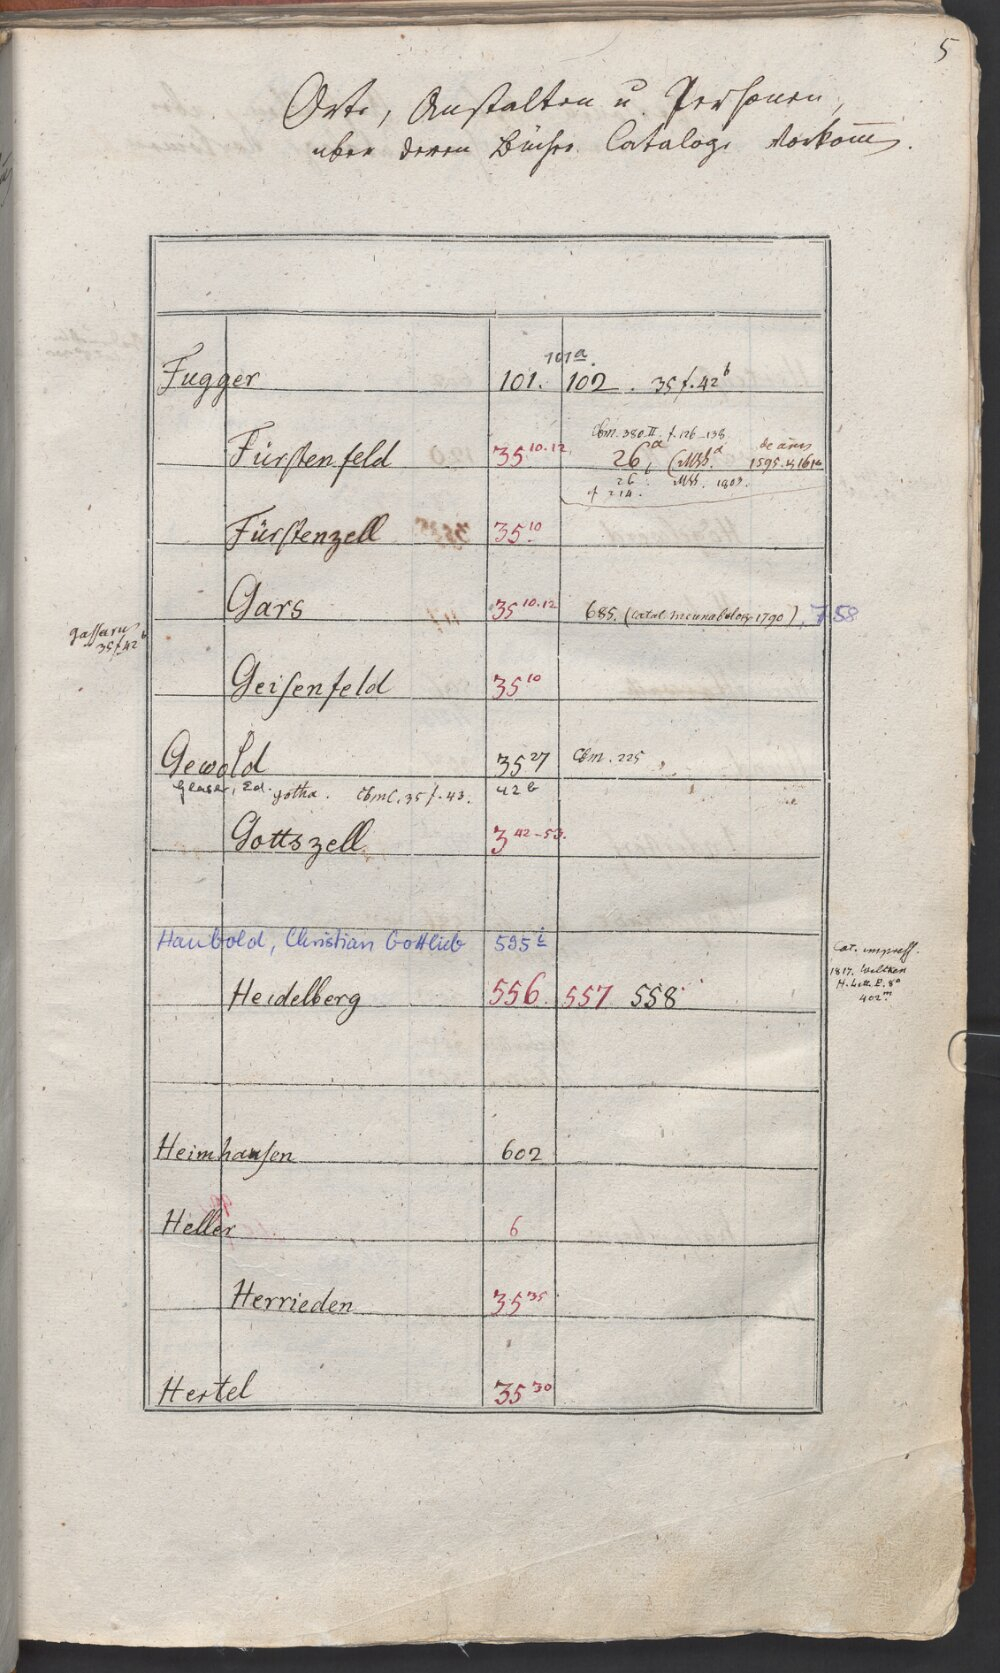 5
Orte, Anstalten u Personen,
über deren Bücher Cataloge vorkom̅en.
101a.
Fugger 101. 102. 35 f. 42b
Cbm. 380 II f. 126-138
Fürstenfeld 35 10.12. 26a (Mss.a de anno 1595. & 1610
26b. Mss. 1803.
f 214.
Fürstenzell 35 10
Gars 35 10.12 685. (Catal. Incunabulor. 1790), 758
Gassarus
35 f. 42b
Geisenfeld 35 10
Gewold 35 27 Cbm. 225
Glaser, Ed. gotha. Cbm C. 35 f. 43. 42b
Gottszell 3 42-53.
Haubold, Christian Gottlieb 595 i
Cat. impress.
1817. Welcken
H. Litt. E. 8o
402m
Heidelberg 556 557 558
Heimhausen 602
Heller 6
Herrieden 35 35
Hertel 35 30